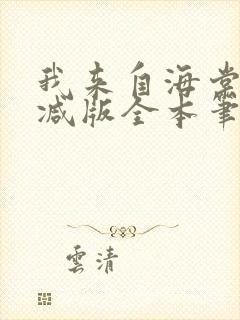 我来自海棠
减版全本笔
雲清